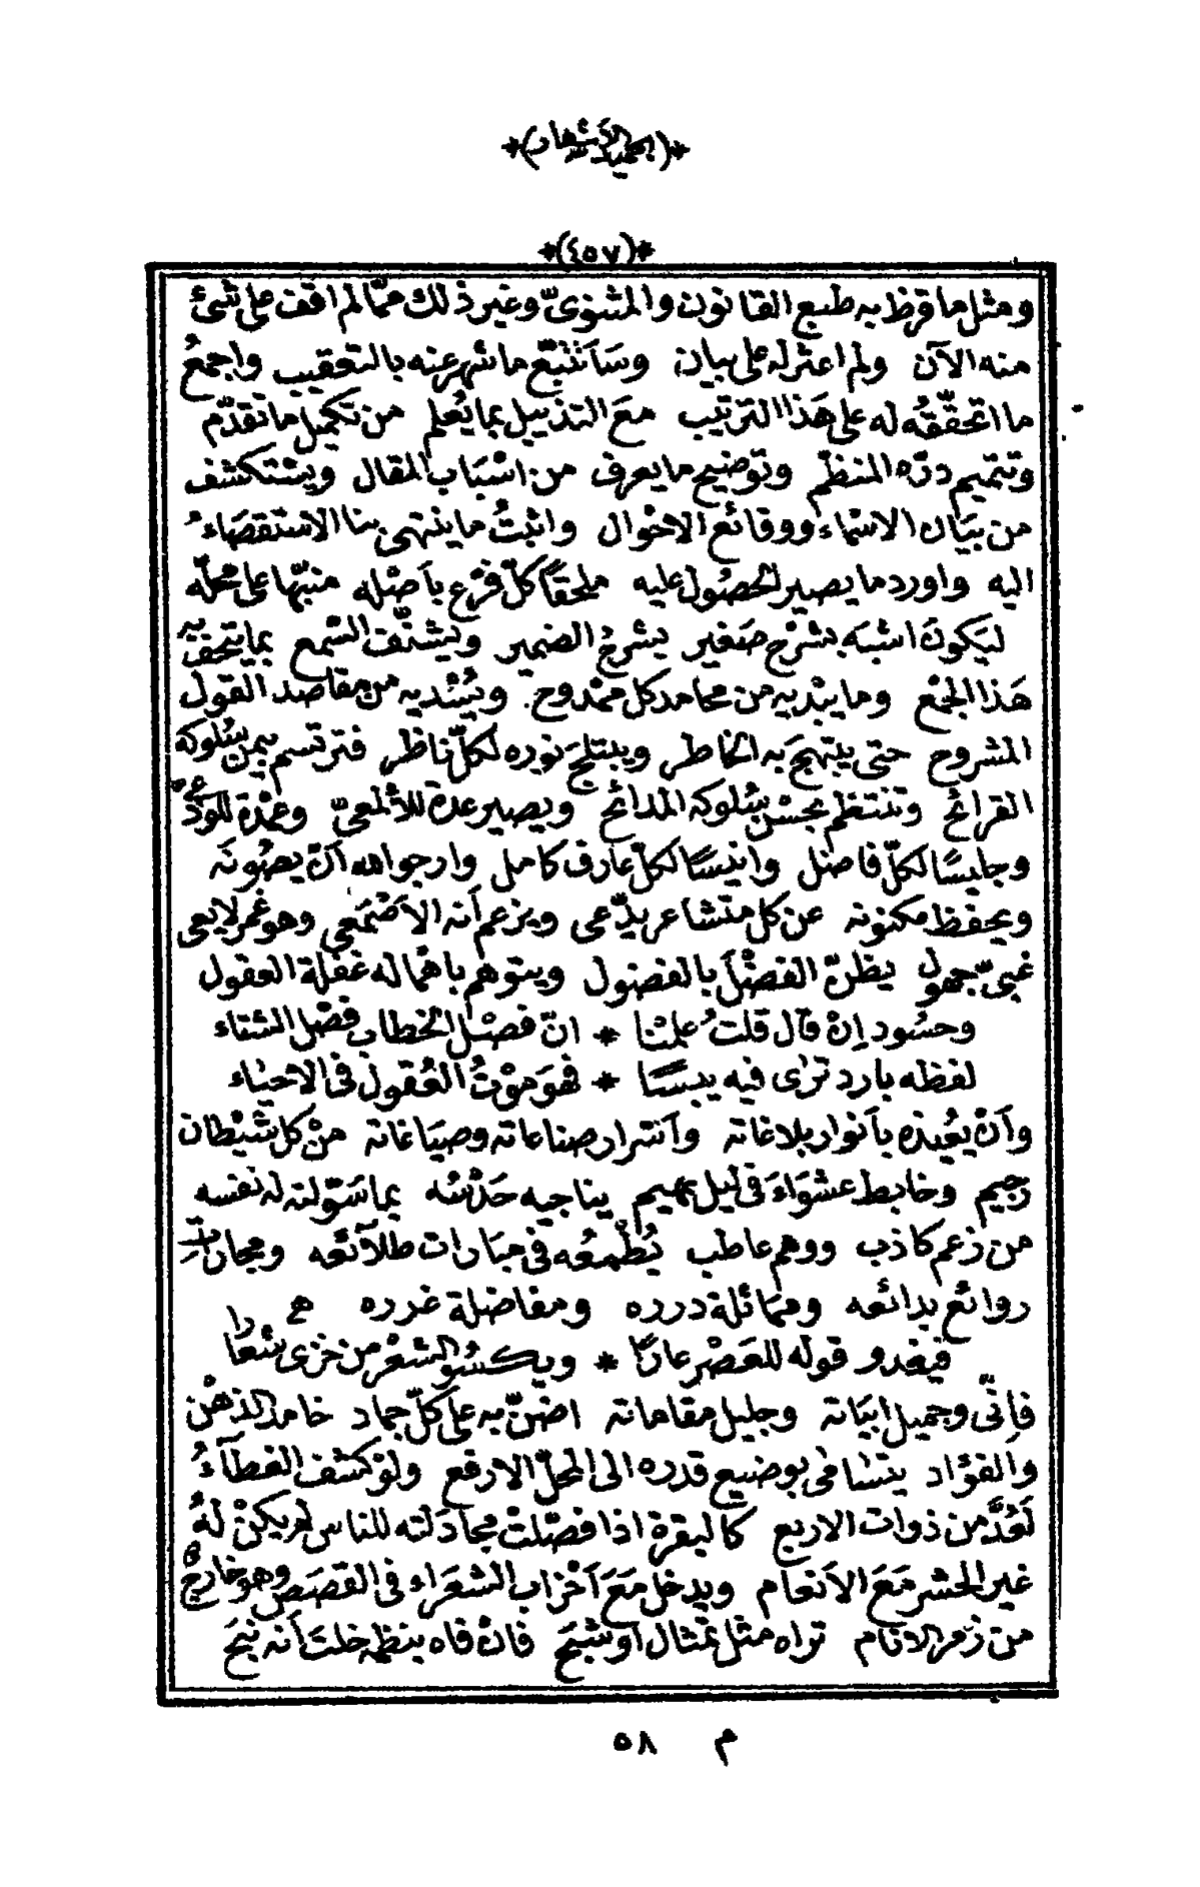 *(بحميد الاشهار)*
*(٤٥٧)*
ومثل ما قرظ به طبع القانون والمثنويّ وغير ذلك ممّا لم اقف على شئ
منه الآن ولم اعثر له على بيان وسَأتتبّع ما شهر عنه بالتعقيب واجمعُ
ما اتحقّقُه له على هَذا الترتيب معَ التذييل بما يُعلم من تكميل ما تقدّم
وتتميم درّه المنظم وتوضيح ما يعرف من اسْبَاب المقال ويستكشف
من بيَان الاسْماء ووقائع الاحْوال واثبتُ ما ينتهى بنا الاستقصَاءُ
اليه واورد ما يصير الحصُول عليه ملحقًا كلّ فرْع باَصْله منبّها على محلّه
ليكونَ اشبَه بشرْح صَغير يشرحُ الضمير ويشنّف السّمع بما يتحف به
هَذا الجمْع وما يبْديه من محامد كل ممْدوح ويُسْديه من مقاصد القول
المشروح حتى يبتهجَ به الخاطر ويبتلجَ نوره لكلّ ناظر فترتسم بيمن سُلوكه
القرائح وتنتظم بحسْن سُلوكه المدائح ويصير عدة للألمعىّ وعمْدة للوذعىّ
وجليسًا لكلّ فاضل وانيسًا لكلّ عارف كامل وارجو الله أنْ يصُونَه
ويحفظ مكنونه عن كل متشاعر يدّعى ويزعم أنه الاَصْمَعى وهو غمر لا يعى
غبىّ جهول يظنّ الفضْلَ بالفضول ويتوهم باهْماله غفلة العقول
وحسُود إنْ قال قلتُ علمْنا * انّ فصْل الخطاب فضْل الشتاء
لفظه بارد ترٰى فيه يبسًا * فهوَ موْتُ العُقول فى الاحيَاء
وأنْ يعُيذه باَنوار بلاغاته وأسرار صناعاته وصيَاغاته منْ كل شيْطان
رجيم وخابط عشوَاءَ فى ليل بهيم يناجيه حَدْسُه بما سَوّلته له نفسه
من زعم كاذب ووهم عاطب يُطْمعُه فى مبَارات طلآئعه ومجارات
روائع بدائعه ومماثلة درره ومفاضلة غرره
فيغدو قوله للعَصْر عارًا * ويكسُو الشعْر من خزى شعَارا
فإنّى وجميل ابيَاته وجليل مقاماته اضنّ به على كلّ جماد خامد الذهْن
والفؤاد يتسَامى بوضيع قدره الى المحلّ الارفع ولوْ كشف الغطآءُ
لَعُدَّ من ذوات الاربع كالبقرة اذا فصّلتْ مجادَلته للناس لم يكنْ لهُ
غير الحشر مَعَ الاَنعَام ويدخل مَعَ اَحْزاب الشعَراء فى القصَص وهوَ خارجٌ
من زمر الانام تراه مثل تمثال أو شبَحْ فانْ فاه بنظم خلتَ أنه نبَحَ
م ٥٨